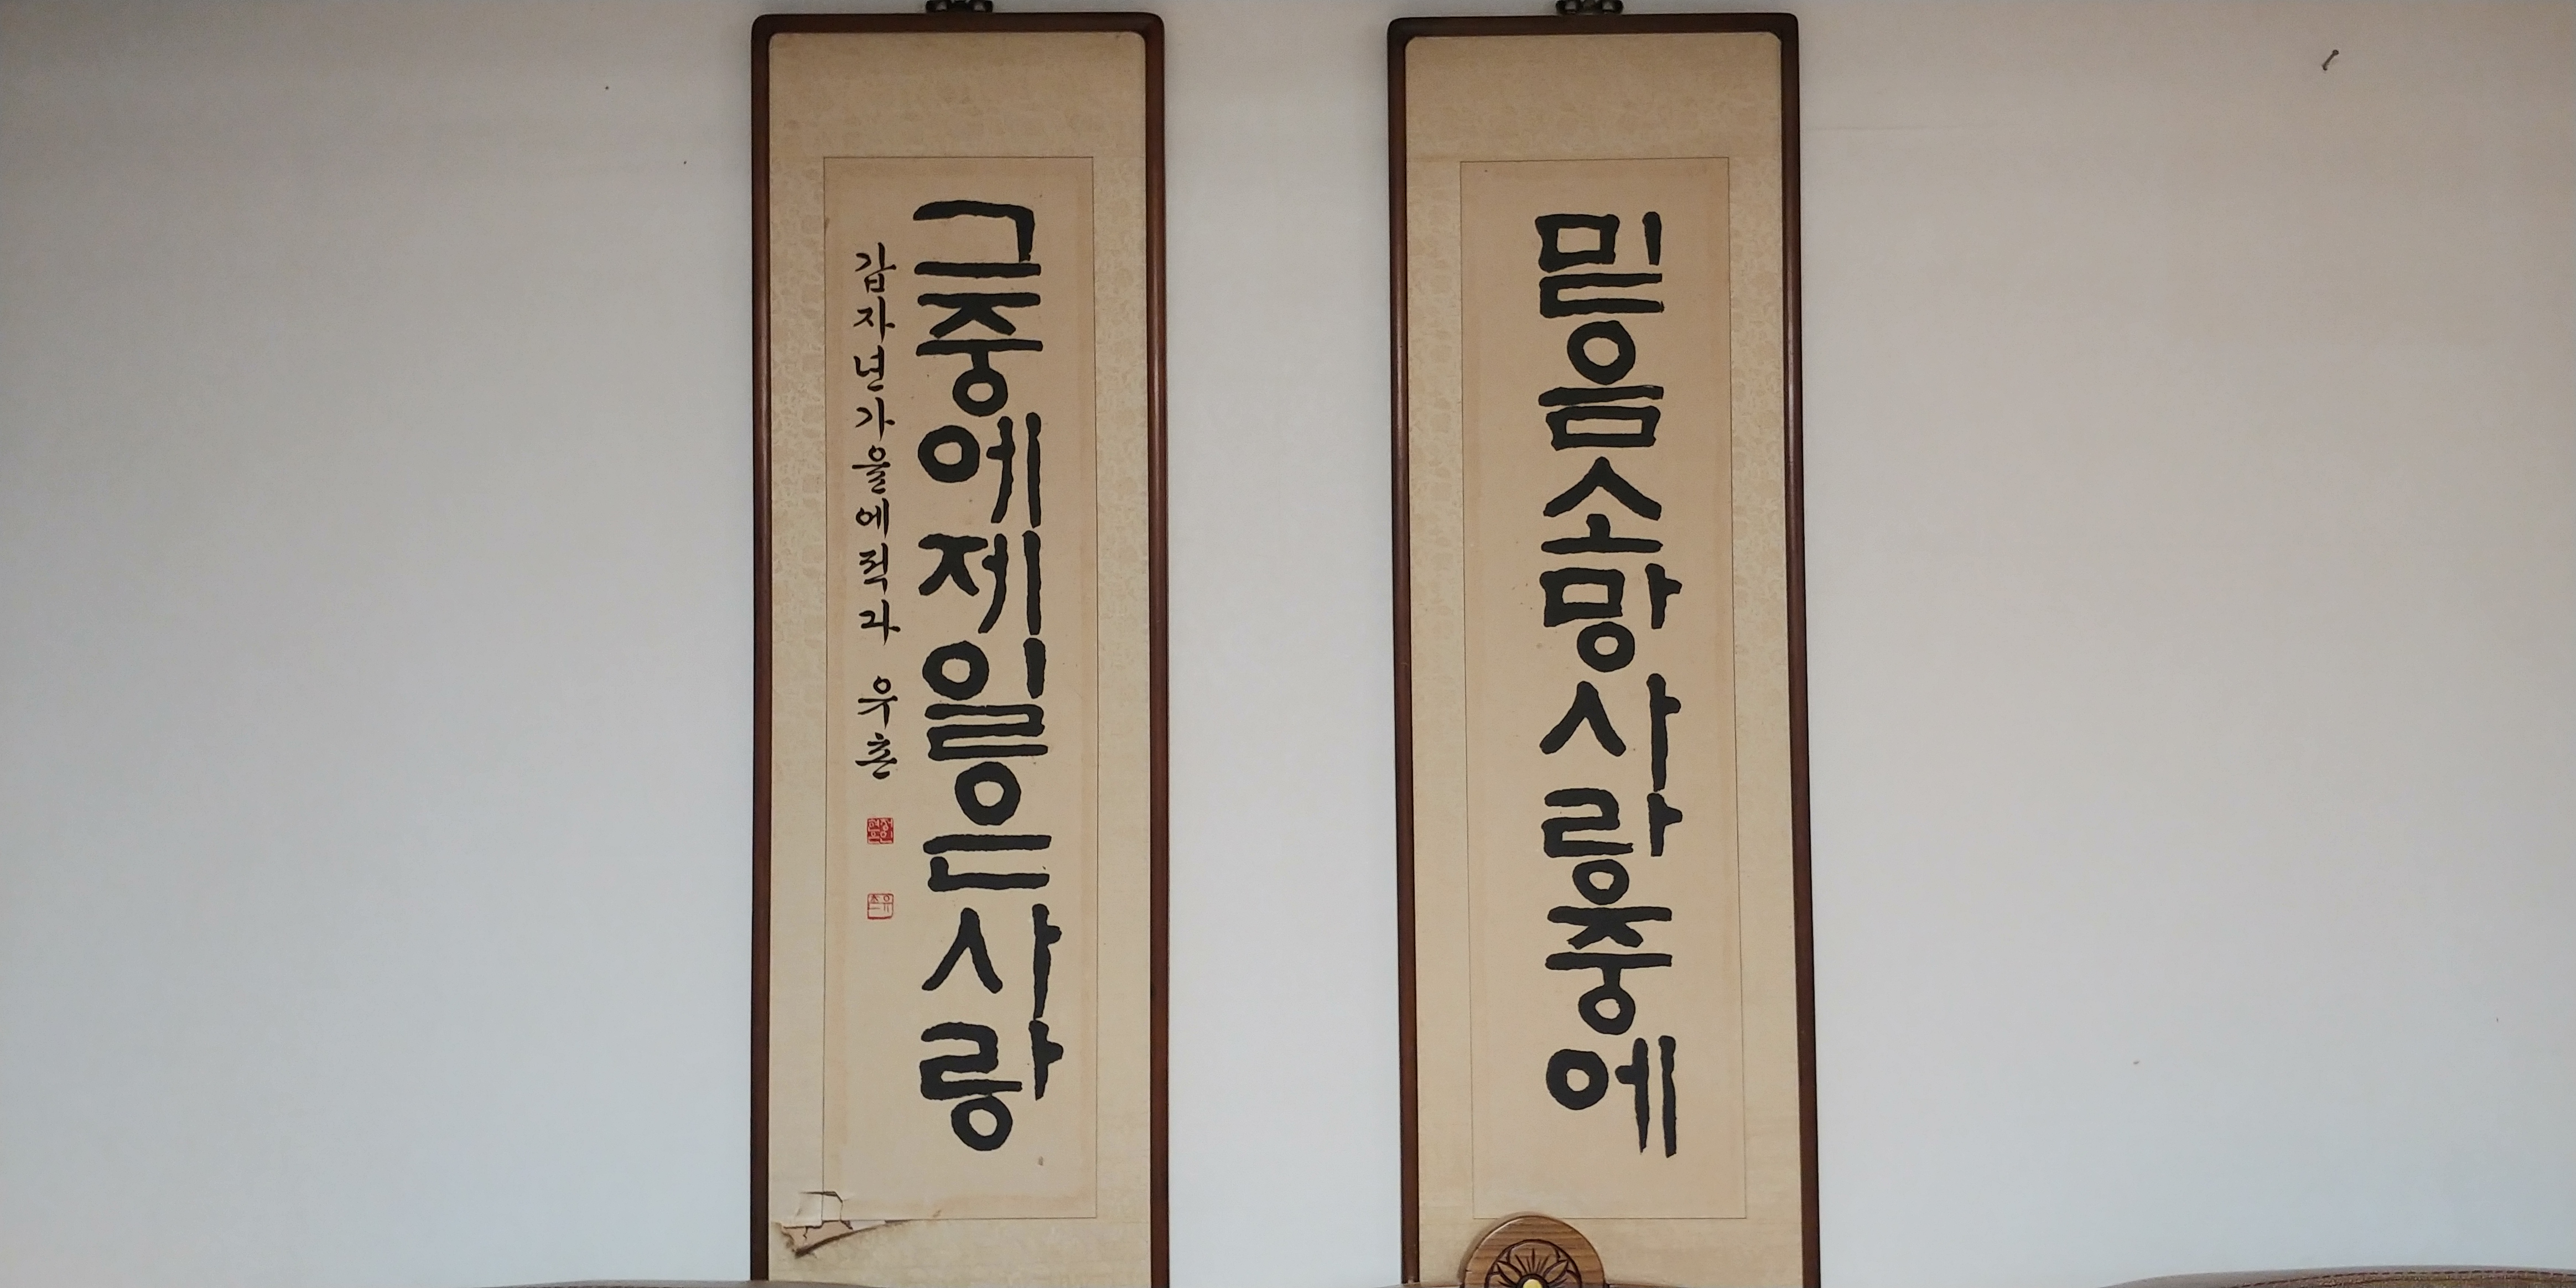 믿음소망사랑중에
그중에제일은사랑
갑자년가을에적다 우촌